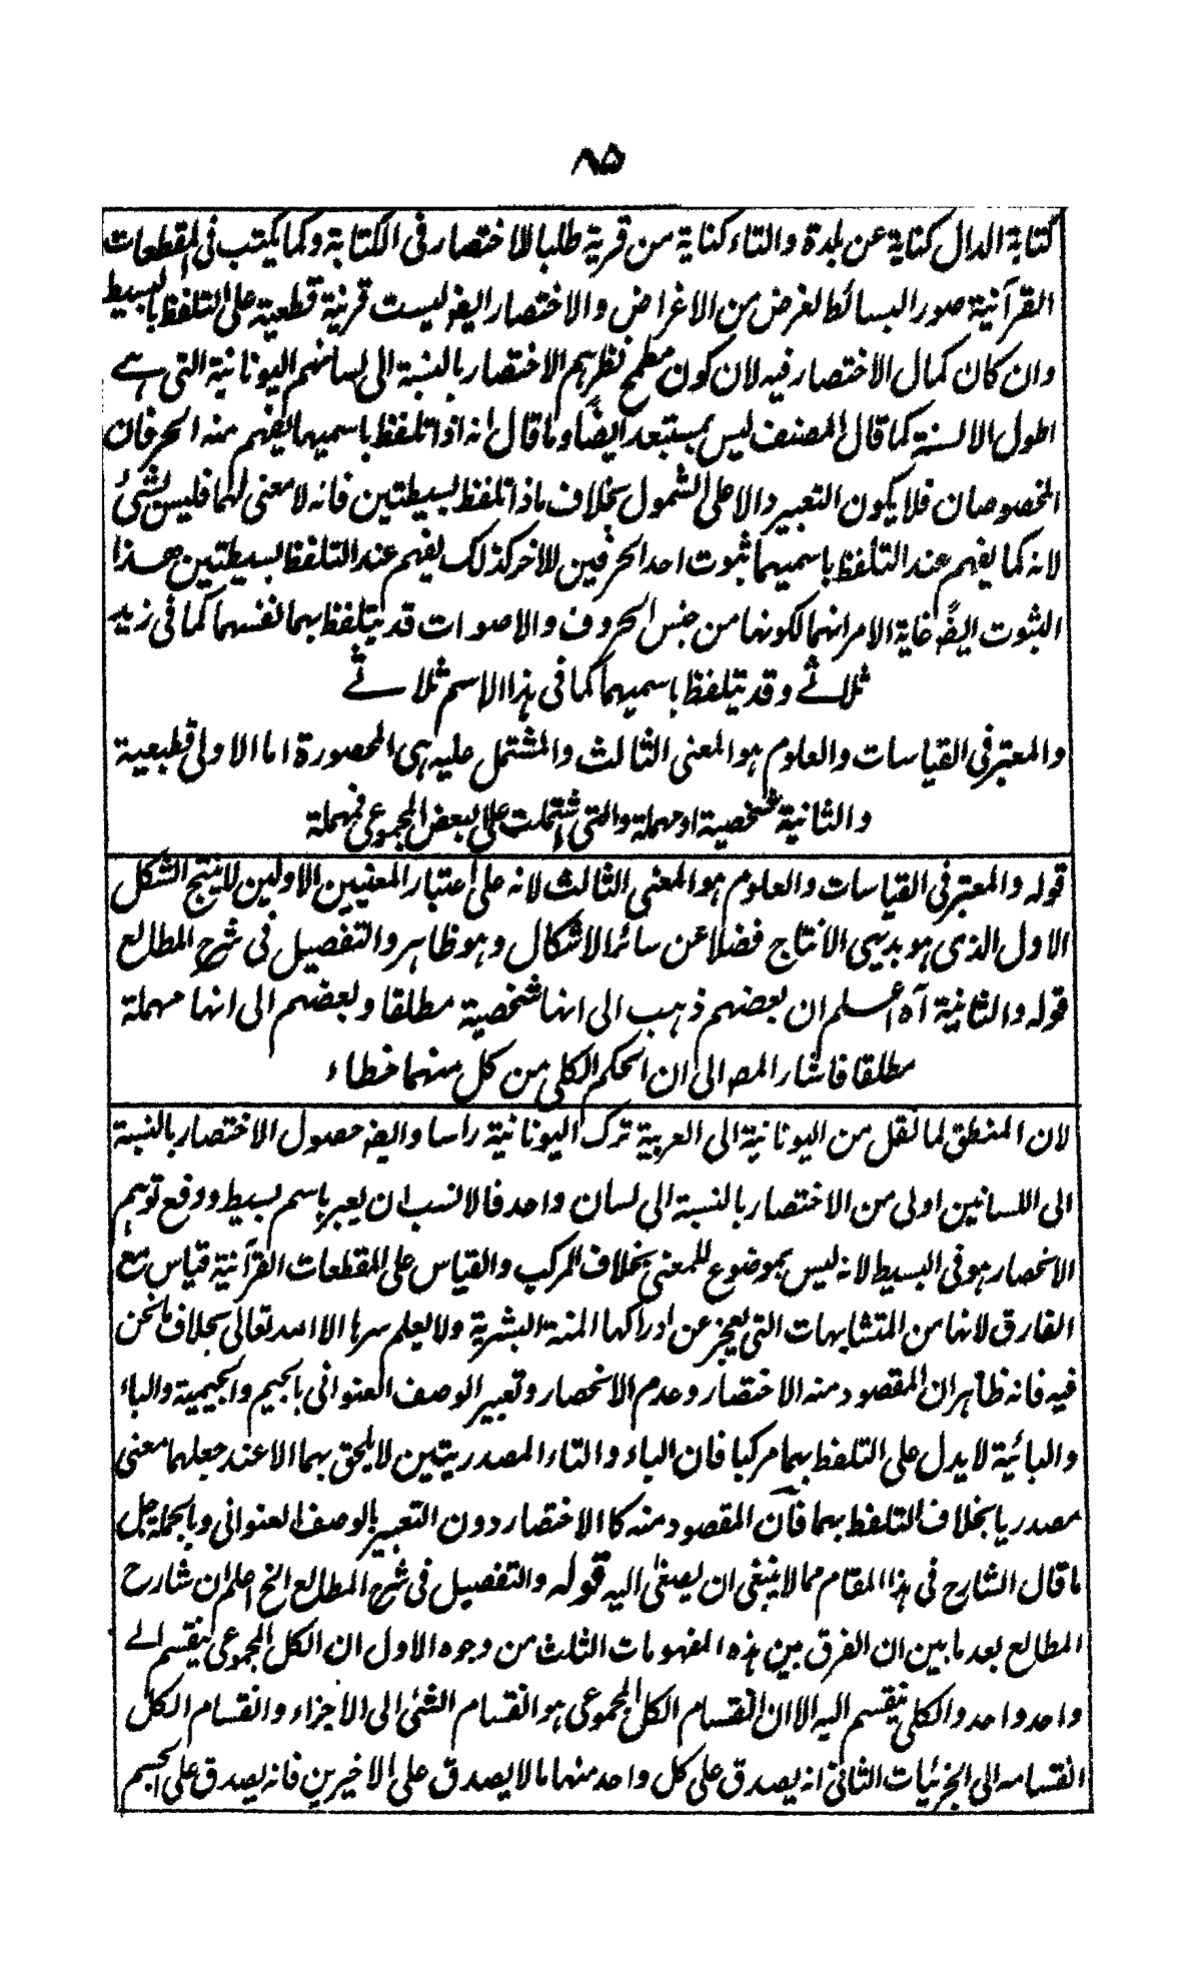 ٨٥
كتابة الدال كناية عن بلدة والتاء كناية من قرية طلبا للاختصار فى الكتابة وكما يكتب فى المقطعات
القرآنية صور البسائط لغرض من الاغراض والاختصار ايضو ليست قرينة قطعية على التلفظ بالبسيط
وان كان كمال الاختصار فيه لان كون مطمح نظرهم الاختصار بالنسبة الى لسانهم اليونانية التى هے
اطول الالسنة كما قال المصنف ليس بمستبعد ايضًا وما قال انه اذا تلفظ باسميهما يفهم منه الحرفان
المخصوصان فلا يكون التعبير دالا على الشمول بخلاف ما اذا تلفظ بسيطتين فانه لا معنى لهما فليس بشئ
لانه كما يفهم عند التلفظ باسميهما ثبوت احد الحرفين للاخر كذلك يفهم عند التلفظ بسيطتين هذا
الثبوت ايضًا غاية الامر انهما لكونهما من جنس الحروف والاصوات قد يتلفظ بهما نفسهما كما فى زيد
ثلاثے وقد يتلفظ باسميهما كما فى هذا الاسم ثلاثے
والمعتبر فى القياسات والعلوم هو المعنى الثالث والمشتمل عليه هى المحصورة اما الاولى فطبعية
والثانية شخصية او مهملة والتى اشتملت على بعض المجموعى فمهملة
قوله والمعتبر فى القياسات والعلوم هو المعنى الثالث لانه على اعتبار المعنيين الاولين لا ينتج الشكل
الاول الذى هو بديهى الانتاج فضلا عن سائر الاشكال وهو ظاهر والتفصيل فى شرح المطالع
قوله والثانية آه اعلم ان بعضهم ذهب الى انها شخصية مطلقا وبعضهم الى انها مهملة
مطلقا فاشار المصـ الى ان الحكم الكلى من كل منهما خطاء
لان المنطق لما نقل من اليونانية الى العربية ترك اليونانية راسا وايضـ حصول الاختصار بالنسبة
الى اللسانين اولى من الاختصار بالنسبة الى لسان واحد فالانسب ان يعبر باسم بسيط ودفع توهم
الانحصار هو فى البسيط لانه ليس بموضوع للمعنى بخلاف المركب والقياس على المقطعات القرآنية قياس مع
الفارق لانها من المتشابهات التى يعجز عن ادراكها المنة البشرية ولا يعلم سرها الا الله تعالى بخلاف ما نحن
فيه فانه ظاهر ان المقصود منه الاختصار وعدم الانحصار وتعبير الوصف العنوانى بالجيم والجيمية والباء
والبائية لا يدل على التلفظ بهما مركبا فان الياء والتاء المصدريتين لا يلحق بهما الا عند جعلهما معنى
مصدريا بخلاف التلفظ بهما فان المقصود منه كا الاختصار دون التعبير بالوصف العنوانى وبالجملة جل
ما قال الشارح فى هذا المقام مما لا ينبغى ان يصغى اليه قوله والتفصيل فى شرح المطالع الخ اعلم ان شارح
المطالع بعد ما بين ان الفرق بين هذه المفهومات الثلث من وجوه الاول ان الكل المجموعى ينقسم الے
واحد واحد والكلى ينقسم اليه الا ان انقسام الكل المجموعى هو انقسام الشئ الى الاجزاء وانقسام الكل
انقسامه الى الجزئيات الثانى انه يصدق على كل واحد منهما ما لا يصدق على الاخيرين فانه يصدق على الجسم